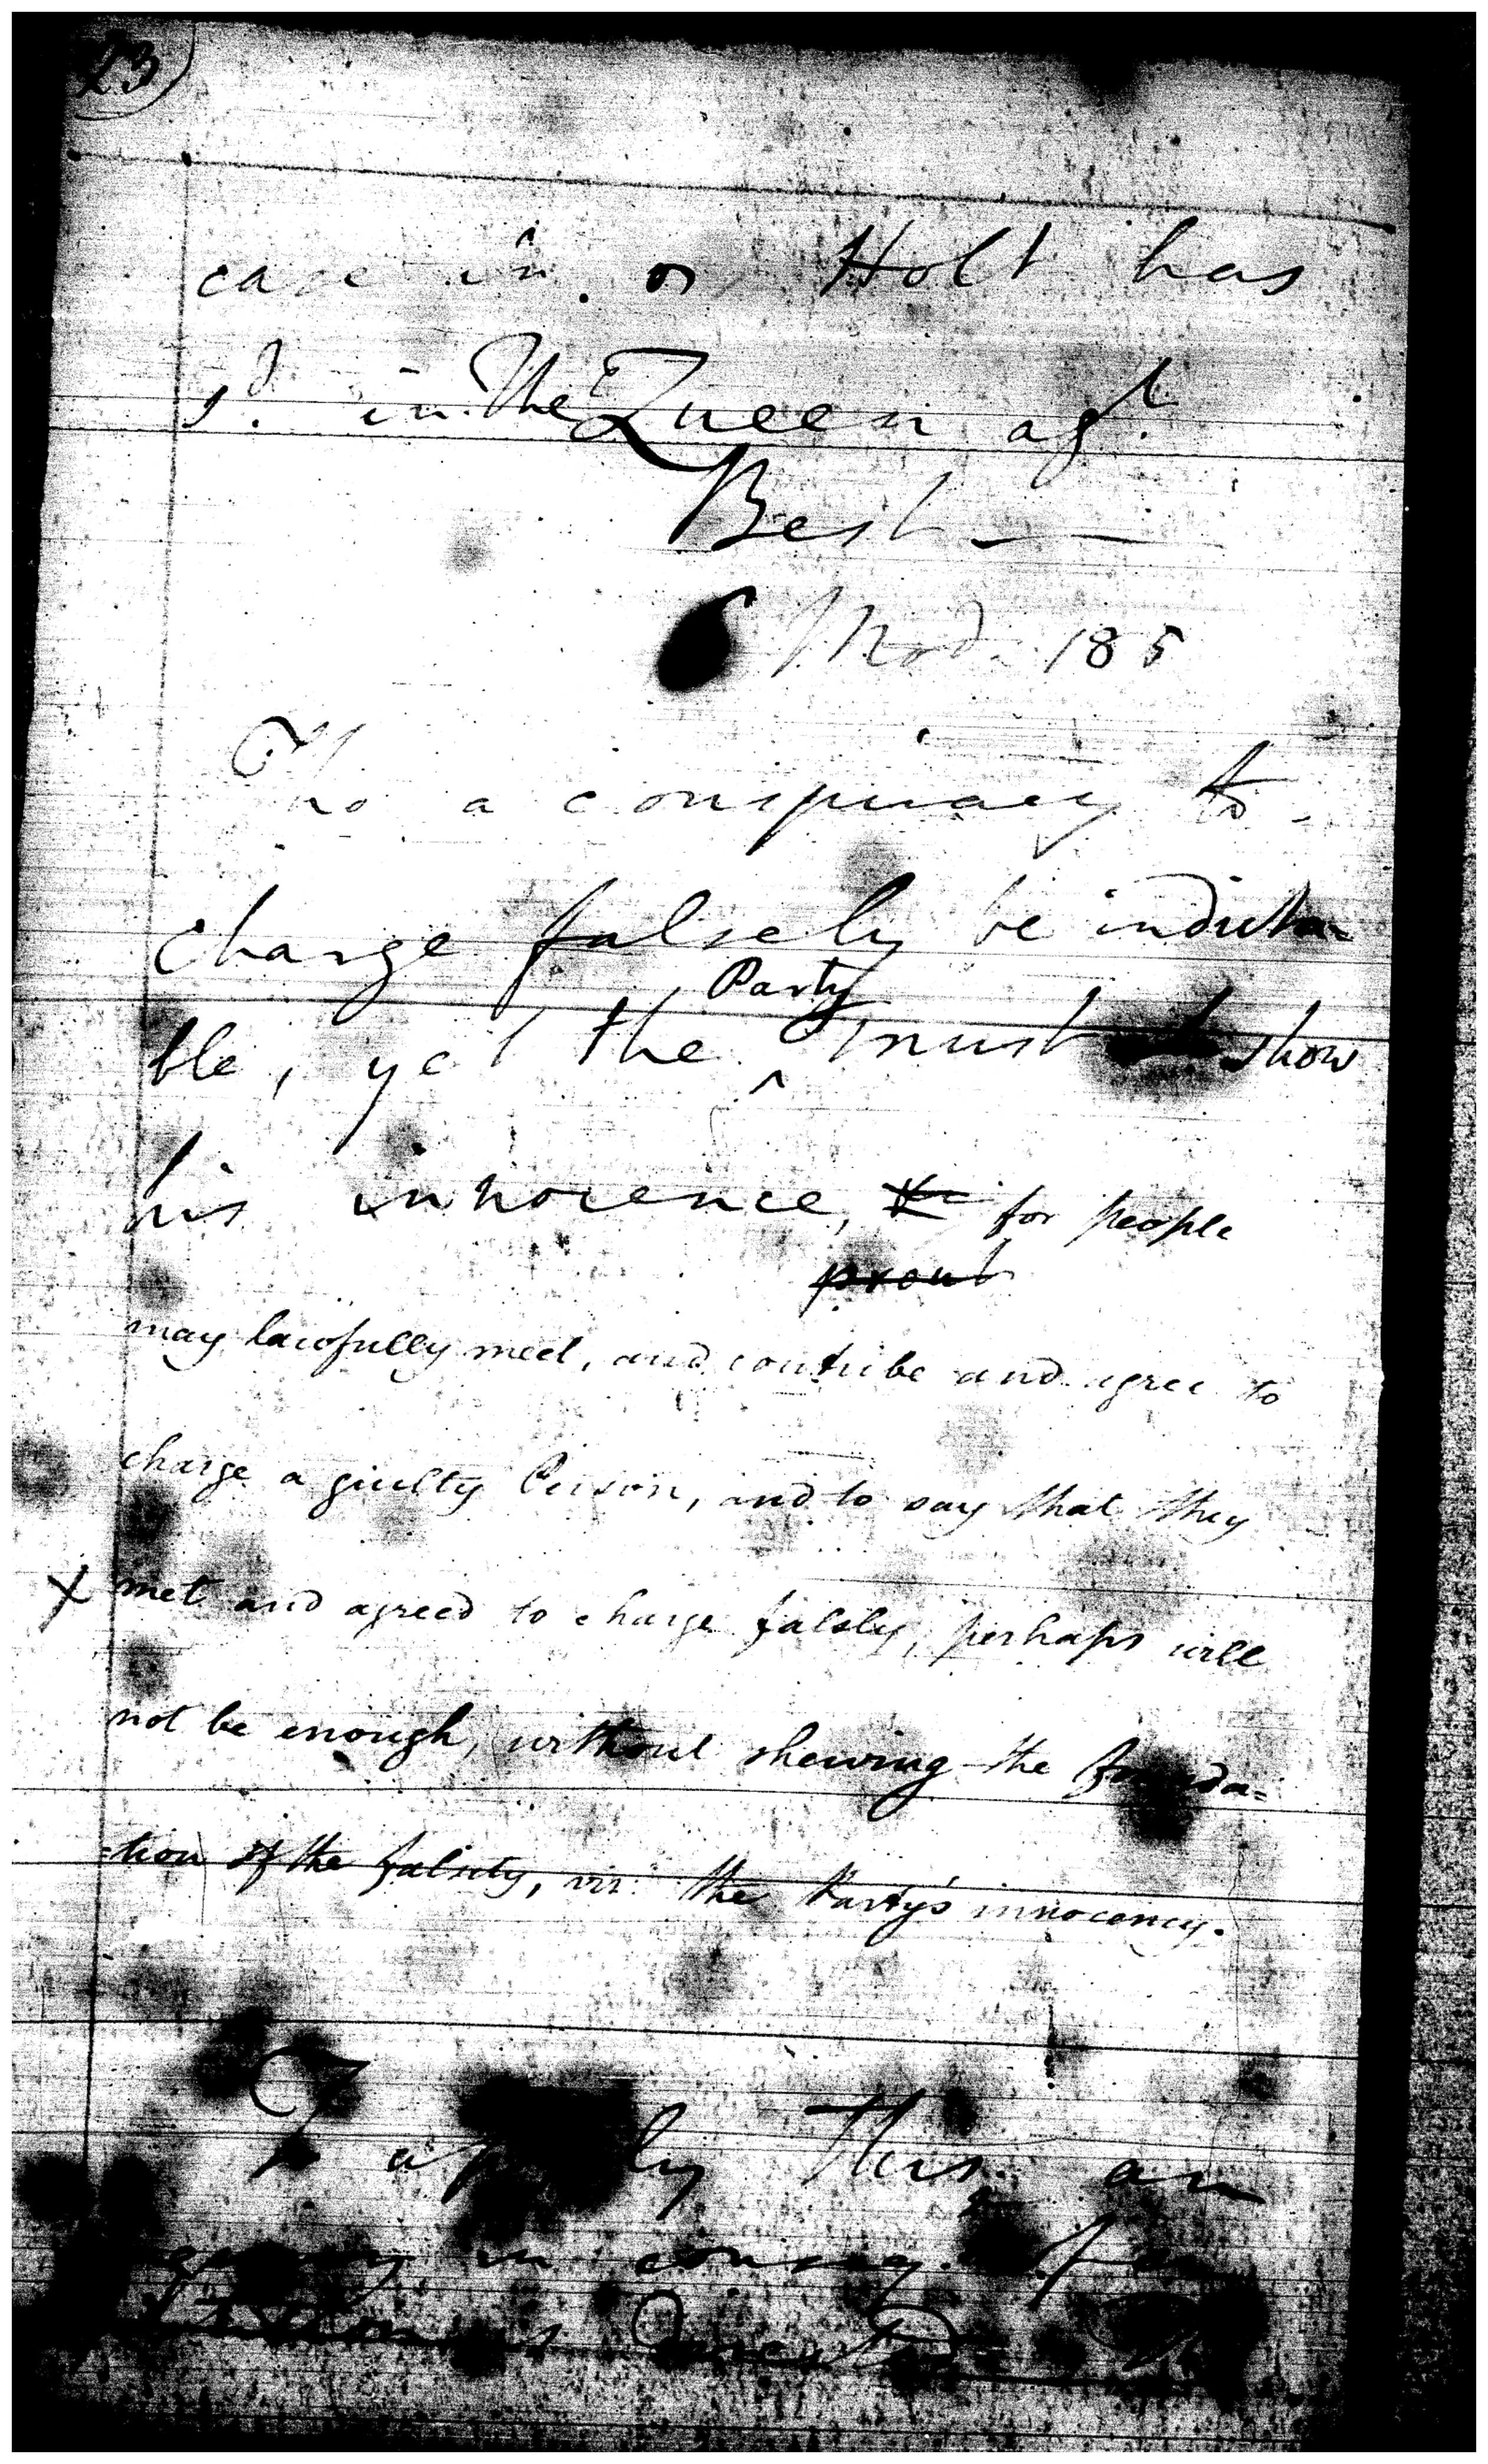 23
case in. or Holt has
sd. in the Queen agt.
Best —
6 Mod. 185
Tho a conspiracy to
charge falsely be indicta=
Party
ble, yet the ^ must show
his innocence, for people
prout
may lawfully meet, and contribe and agree to
charge a guilty Person, and to say that they
X met and agreed to charge falsly, perhaps will
not be enough, without shewing the Founda=
=tion of the falsity, viz. the Party's innocency.
I apply this an
in